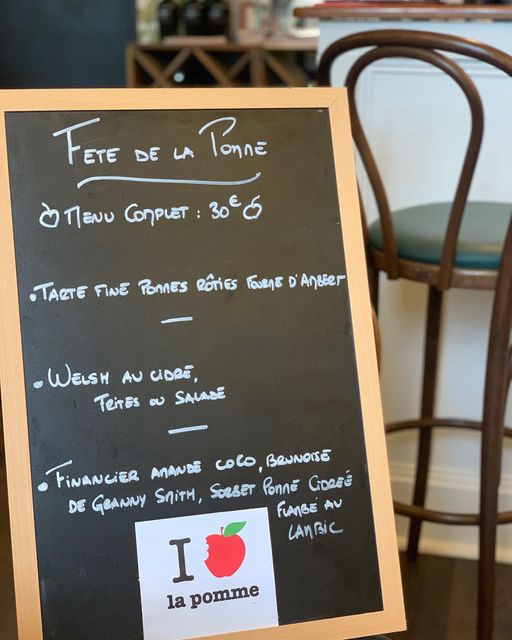 FETE DE LA POMME
MENU COMPLET : 30€
• TARTE FINE POMMES RÔTIES FOURME D'AMBERT
—
• WELSH AU CIDRE,
FRITES OU SALADE
—
• FINANCIER AMANDE COCO, BRUNOISE
DE GRANNY SMITH, SORBET POMME CIDREÉ
FLAMBÉ AU
LAMBIC
I
la pomme